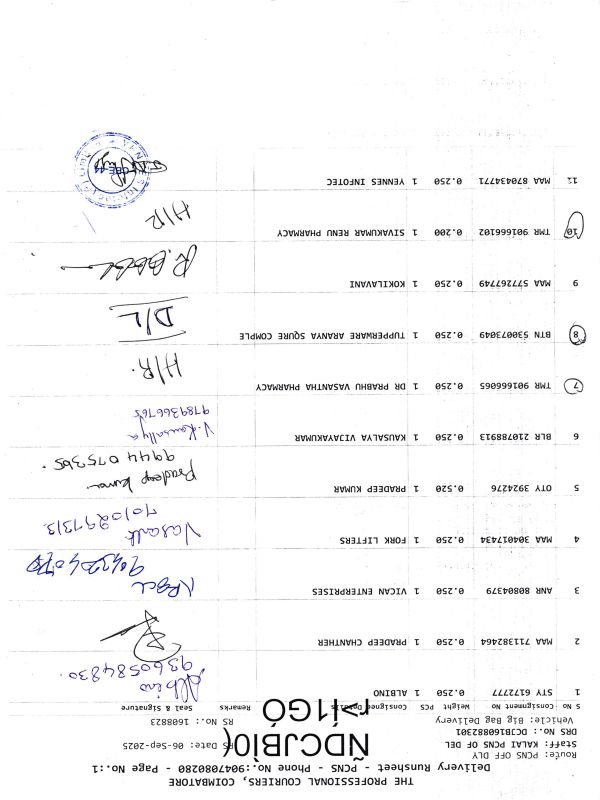 THE PROFESSIONAL COURIERS, COIMBATORE
Delivery Runsheet - PCNS - Phone No.:9047080280 - Page No.:1
Route: PCNS OFF DLY
Staff: KALAI PCNS OF DEL
DRS No.: DCJB1608823O1
Vehicle: Big Bag Delivery
RS Date: 06-Sep-2025
RS No.: 1608823
S No Consignment No Weight PCS Consignee Details Remarks Seal & Signature
1 STY 6172777 0.250 1 ALBINO Albino 9360584830.
2 MAA 711381464 0.250 1 PRADEEP CHANTHER
3 ANR 80804379 0.250 1 VICAN ENTERPRISES
4 MAA 304017434 0.250 1 FORK LIFTERS Vasanth 7010297313
5 OTY 3924276 0.520 1 PRADEEP KUMAR Pradeep kumar 9944075365.
6 BLR 210788913 0.250 1 KAUSALYA VIJAYAKUMAR V. Kausallya 9789366765
7 TMR 901666065 0.250 1 DR PRABHU VASANTHA PHARMACY H/R.
8 BTN 530073049 0.250 1 TUPPERWARE ARANYA SQURE COMPLE D/L
9 MAA 577267749 0.250 1 KOKILAVANI
10 TMR 901666102 0.200 1 SIVAKUMAR RENU PHARMACY H/R
11 MAA 870434771 0.250 1 YENNES INFOTEC